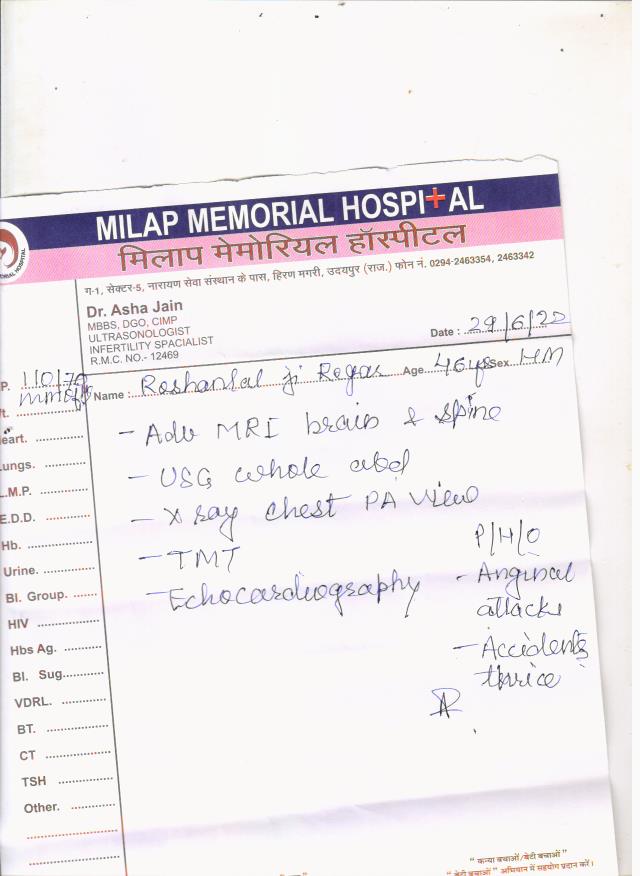 MILAP MEMORIAL HOSPITAL
मिलाप मेमोरियल हॉस्पीटल
ग-1, सेक्टर-5, नारायण सेवा संस्थान के पास, हिरण मगरी, उदयपुर (राज.) फोन नं. 0294-2463354, 2463342
Dr. Asha Jain
MBBS, DGO, CIMP
ULTRASONOLOGIST
INFERTILITY SPACIALIST
R.M.C. NO.- 12469
Date : 29/6/20
P. 110/70
mmHg
Name : Roshanlal ji Regar Age 46 yrs Sex HM
- Adv MRI brain & spine
- USG whole abd
- X ray chest PA view
- TMT
- Echocardiography
P/H/O
- Anginal
attacks
- Accidents
thrice
eart.
ungs.
.M.P.
E.D.D.
Hb.
Urine.
Bl. Group.
HIV
Hbs Ag.
Bl. Sug.
VDRL.
BT.
CT
TSH
Other.
" कन्या बचाओं/बेटी बचाओं "
" बेटी बचाओं" अभियान में सहयोग प्रदान करें।